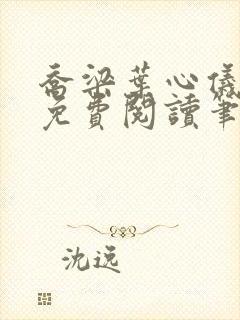 喬梁葉心儀
免費閱讀筆
沈逸